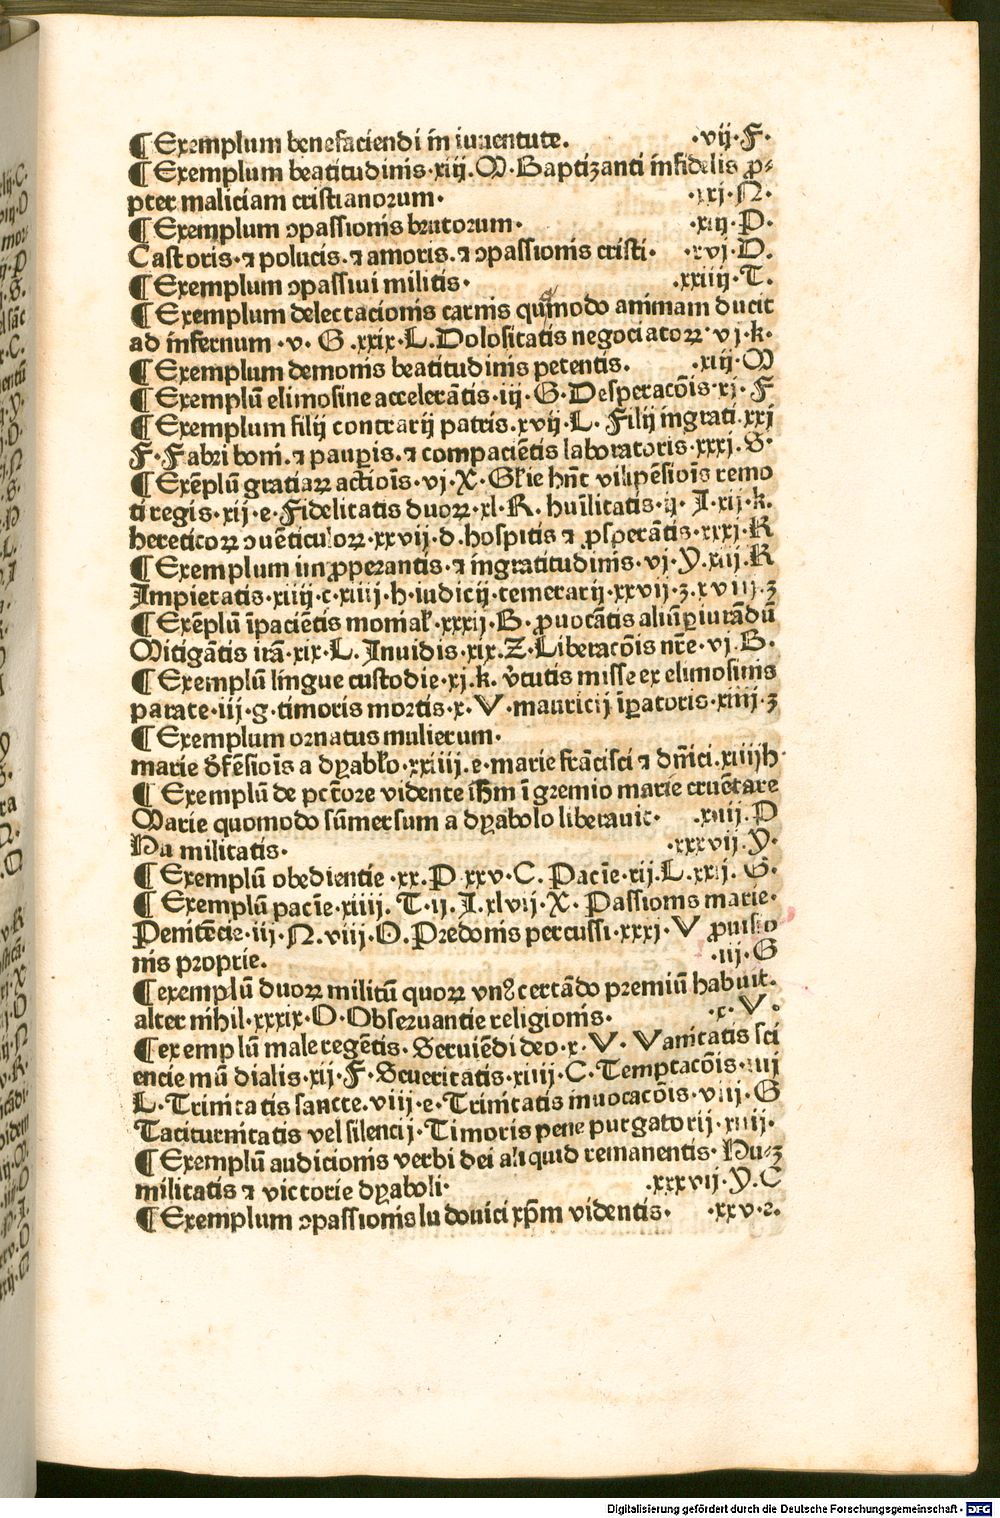 ¶ Exemplum benefaciendi in iuuentute. ·vij·F·
¶ Exemplum beatitudinis·xiij.M·Baptizanti infidelis ꝓ⸗
pter maliciam cristianorum· ·xxj·N·
¶ Exemplum ↄpassionis brutorum· ·xiij·P·
Castoris·⁊ polucis.⁊ amoris.⁊ ↄpassionis cristi· ·xvj·D·
¶ Exemplum ↄpassiui militis· ·xxiiij·T·
¶ Exemplum delectacionis carnis qũmodo animam ducit
ad infernum ·v· G ·xxix·L.Dolositatis negociatoꝝ·vj·k·
¶ Exemplum demonis beatitudinis petentis. ·xiij·M
¶ Exemplũ elimosine accelerãtis·iij·G·Desperacõis·xj·F
¶ Exemplum filij contrarij patris.xvij·L· Filij ingrati.xxj
F·Fabri boni.⁊ pauꝑis.⁊ compaciẽtis laboratoris·xxxj·S·
¶ Exẽplũ gratiaꝝ actiõis·vj·X· hñt vilipẽsiõis remo
ti regis·xij·e·Fidelitatis duoꝝ·xl·R. hũilitatis·ij· I·xij·k.
hereticoꝝ ↄuẽticuloꝝ·xxvij·d.hospitis ⁊ ꝓsperãtis·xxxj·R
¶ Exemplum imꝓperantis·⁊ ingratitudinis·vj·Y.xiij.R
Impietatis·xiiij·c·xiiij·h·iudicij temerarij·xxvij·ʒ.xviij·ʒ
¶ Exẽplũ ĩpaciẽtis monial·xxxij·B·ꝓuocãtis aliũꝑiurãdũ
Mitigãtis irã·xix·L. Inuidis·xix.Z·Liberacõis nr̃e·vj·B·
¶ Exemplũ lingue custodie·xj.k. ꝟtutis misse ex elimosinis
parate·iij·g·timoris mortis·x·V·mauricij ĩꝑatoris·xiiij·ʒ
¶ Exemplum ornatus mulierum·
marie d̃fẽsiõis a dyablo·xxiiij.e·marie frãcisci ⁊ dñici.xiiijh·
¶ Exemplũ de pctõre vidente ihm ĩ gremio marie cruẽtare
Marie quomodo sũmersum a dyabolo liberauit· ·xiiij.P
Hu militatis· ·xxxvij.Y·
¶ Exemplũ obedientie ·xx.P xxv·C. Pacĩe·xij.L.xxij. G·
¶ Exemplũ pacĩe·xiiij. T·ij. I.xlvij·X· Passionis marie·
Penitẽcie·iij·N.viij·O.Predonis percussi·xxxj·V ꝓuisio
nis proprie. ·iij·G
¶ exemplũ duoꝝ militũ quoꝝ vnꝰ certãdo premiũ habuit.
alter nihil·xxxix·O·Obseruantie religionis. ·x·V·
¶ exemplũ male regẽtis·Seruiẽdi deo·x·V· Vanitatis sci
encie mũ dialis·xij·F·Seueritatis·xiiij·C·Temptacõis·iiij
L·Trinitatis sancte.viij·e·Trinitatis inuocacõis·viij·G
Taciturnitatis vel silencij·Timoris pene purgatorij·xiiij·
¶ Exemplũ audicionis verbi dei aliquid remanentis·Hu⸗
militatis ⁊ victorie dyaboli· ·xxxvij·Y.C
¶ Exemplum ↄpassionis ludouici xp̃m videntis· ·xxv·
Digitalisierung gefördert durch die Deutsche Forschungsgemeinschaft - DFG